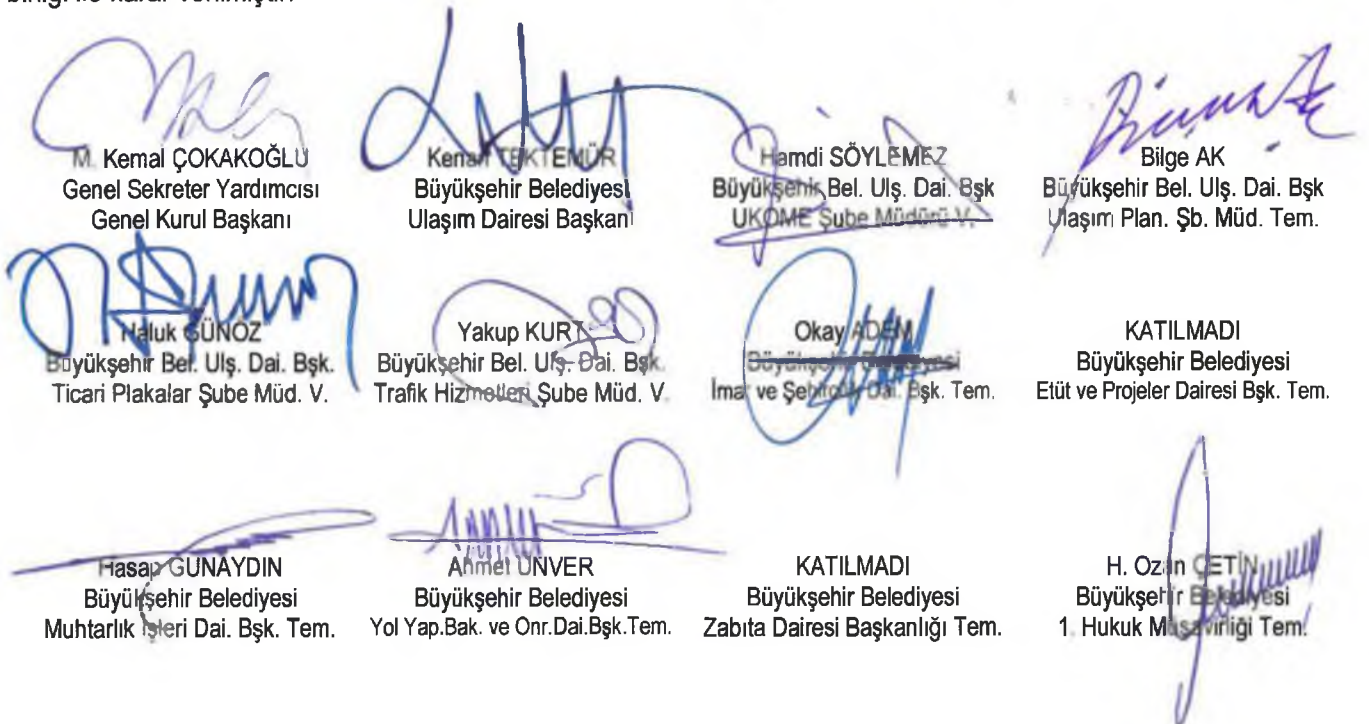 birliği ile karar verilmiştir.
M. Kemal ÇOKAKOĞLU
Genel Sekreter Yardımcısı
Genel Kurul Başkanı
Kenan TEKTEMÜR
Büyükşehir Belediyesi
Ulaşım Dairesi Başkanı
Hamdi SÖYLEMEZ
Büyükşehir Bel. Ulş. Dai. Bşk
UKOME Şube Müdürü V.
Bilge AK
Büyükşehir Bel. Ulş. Dai. Bşk
Ulaşım Plan. Şb. Müd. Tem.
Haluk GÜNÖZ
Büyükşehir Bel. Ulş. Dai. Bşk.
Ticari Plakalar Şube Müd. V.
Yakup KURT
Büyükşehir Bel. Ulş. Dai. Bşk.
Trafik Hizmetleri Şube Müd. V.
Okay ADEM
Büyükşehir Belediyesi
İmar ve Şehircilik Dai. Bşk. Tem.
KATILMADI
Büyükşehir Belediyesi
Etüt ve Projeler Dairesi Bşk. Tem.
Hasan GÜNAYDIN
Büyükşehir Belediyesi
Muhtarlık İşleri Dai. Bşk. Tem.
Ahmet ÜNVER
Büyükşehir Belediyesi
Yol Yap.Bak. ve Onr.Dai.Bşk.Tem.
KATILMADI
Büyükşehir Belediyesi
Zabıta Dairesi Başkanlığı Tem.
H. Ozan ÇETİN
Büyükşehir Belediyesi
1. Hukuk Müşavirliği Tem.